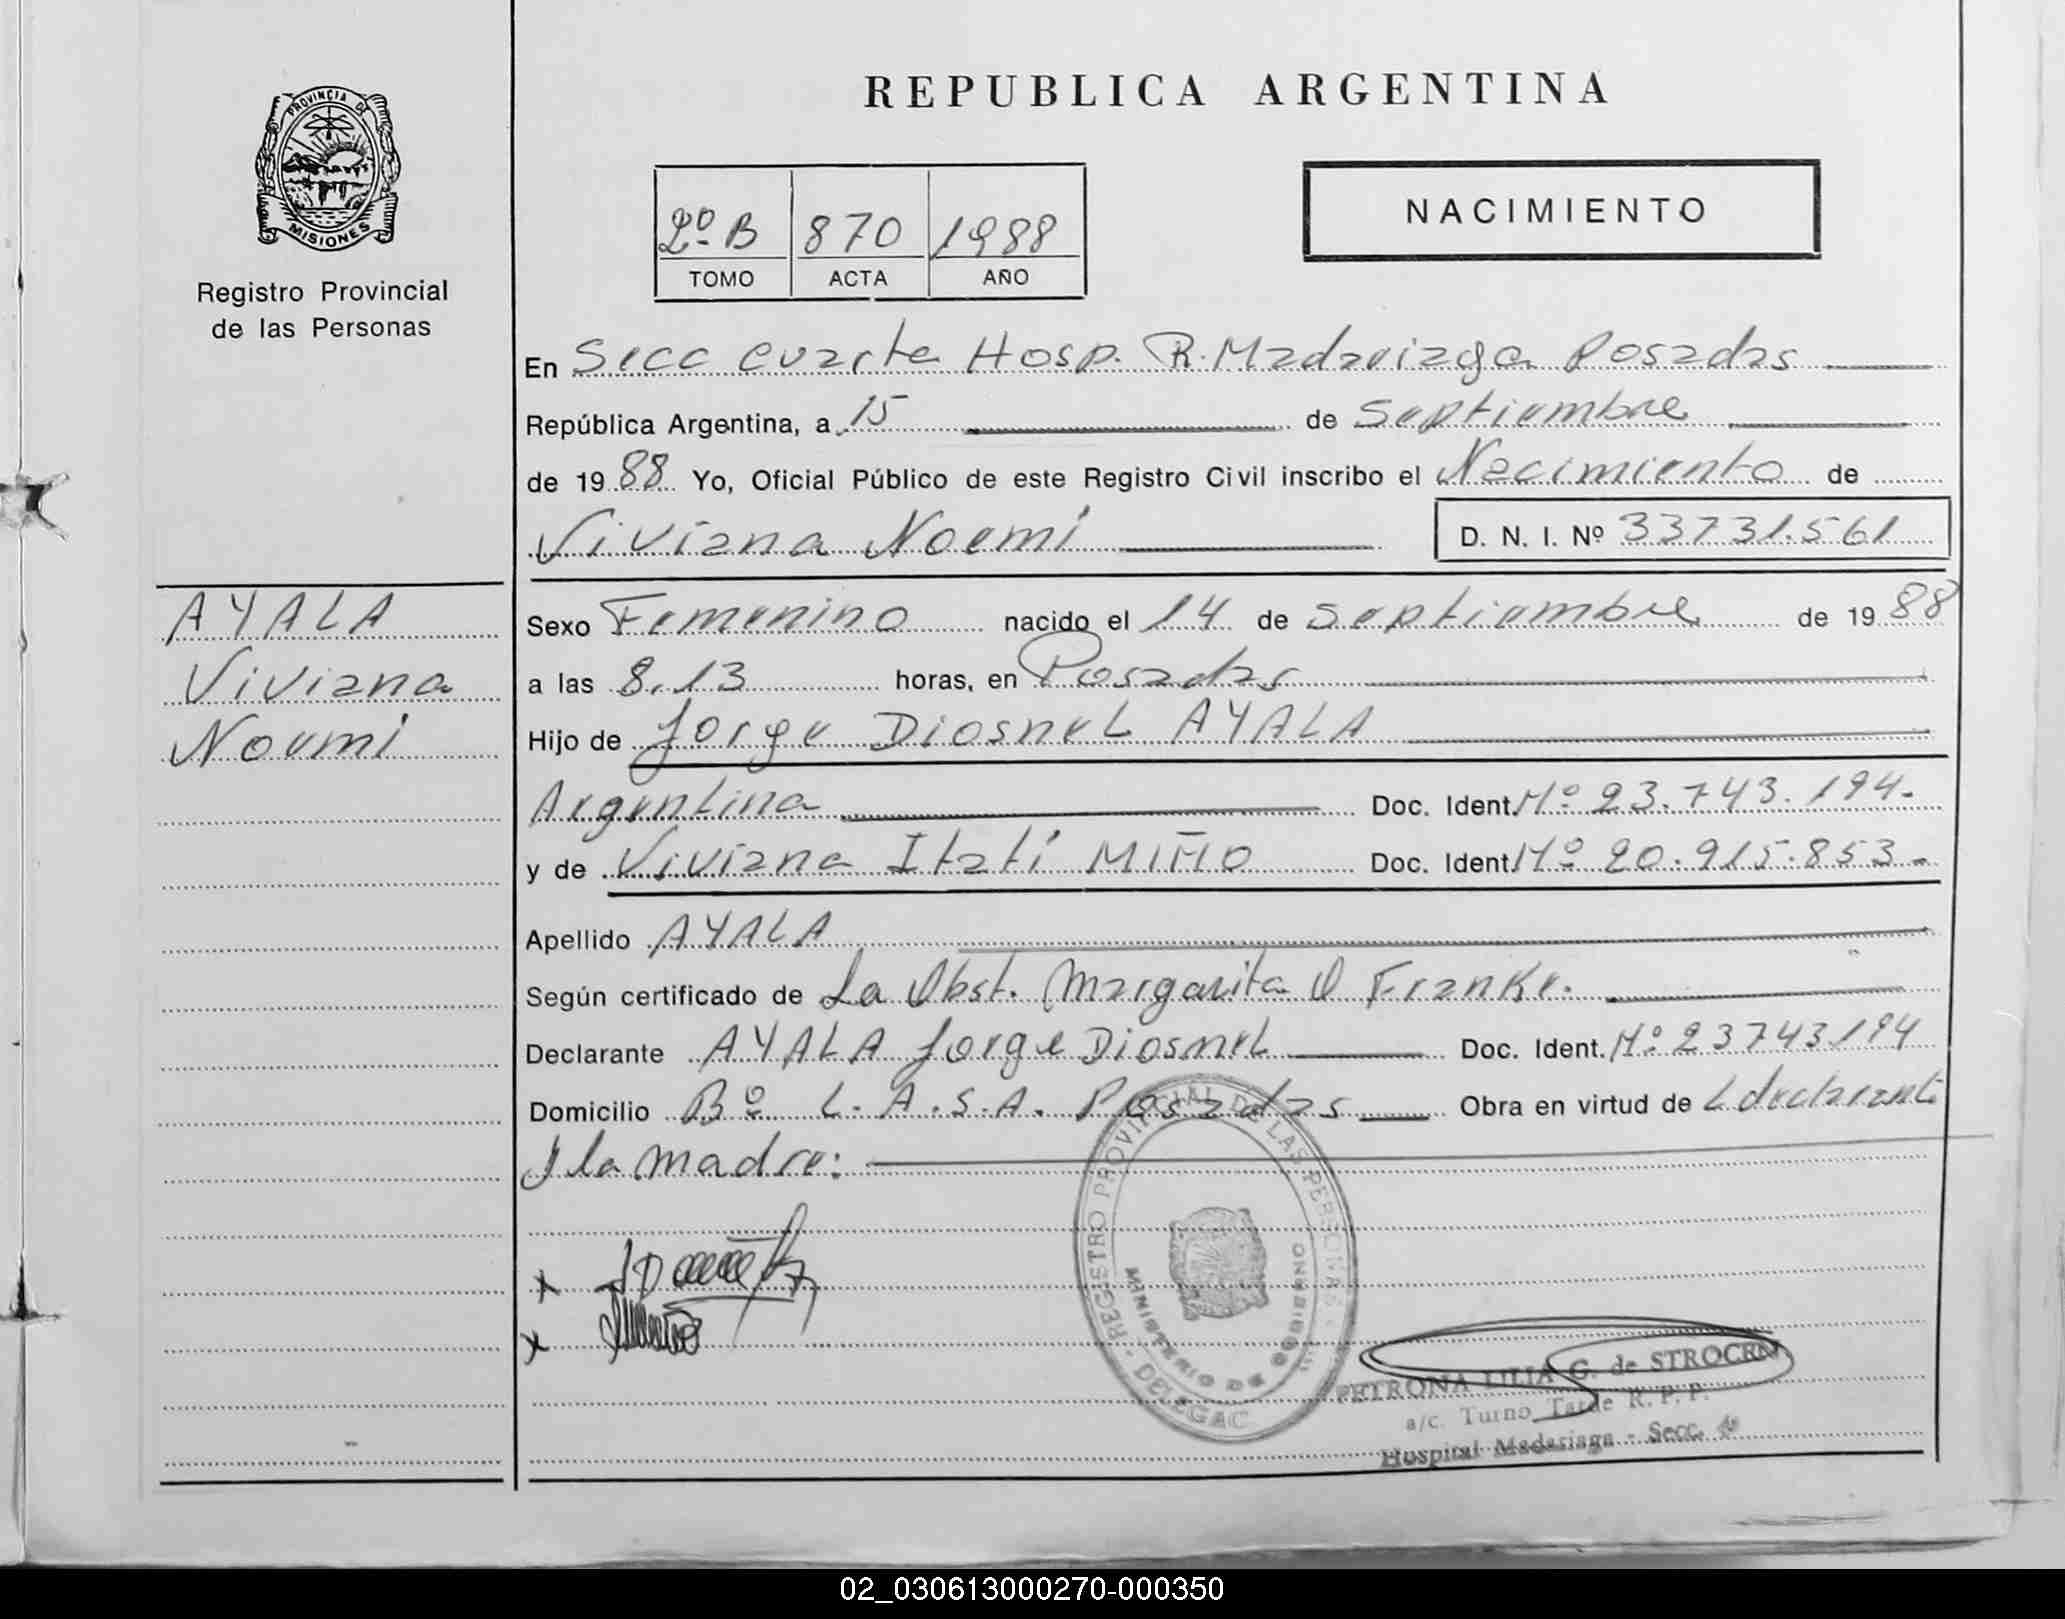 REPUBLICA ARGENTINA
PROVINCIA DE
MISIONES
Registro Provincial
de las Personas
2º B 870 1988
TOMO ACTA AÑO
NACIMIENTO
En Secc cuarta Hosp. R. Madariaga Posadas
República Argentina, a 15 de Septiembre
de 19 88 Yo, Oficial Público de este Registro Civil inscribo el Nacimiento de
Viviana Noemi D. N. I. Nº 33731.561
AYALA
Viviana
Noemi
Sexo Femenino nacido el 14 de Septiembre de 19 88
a las 8.13 horas, en Posadas
Hijo de Jorge Diosnel AYALA
Argentina Doc. Ident. Nº 23.743.194.-
y de Viviana Itati MIÑO Doc. Ident. Nº 20.915.853.-
Apellido AYALA
Según certificado de La Obst. Margarita O Franke.
Declarante AYALA Jorge Diosnel Doc. Ident. Nº 23743194
Domicilio Bº L.A.S.A. Posadas Obra en virtud de L declarante
y la madre:
REGISTRO PROVINCIAL DE LAS PERSONAS
MINISTERIO DE GOBIERNO
DELEGAC
PETRONA LILIA G. de STROCEN
a/c. Turno Tarde R. P. P.
Hospital Madariaga - Secc. 4
02_030613000270-000350